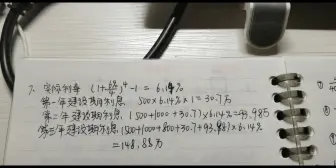 7. 实际利率 (1+6%/4)^4-1=6.14%
第一年建设期利息, 500×6.14%×1=30.7万
第二年建设期利息, (500+1000+30.7)×6.14%=93.985
第三年建设期利息(500+1000+800+30.7+93.98)×6.14%
=148.88万